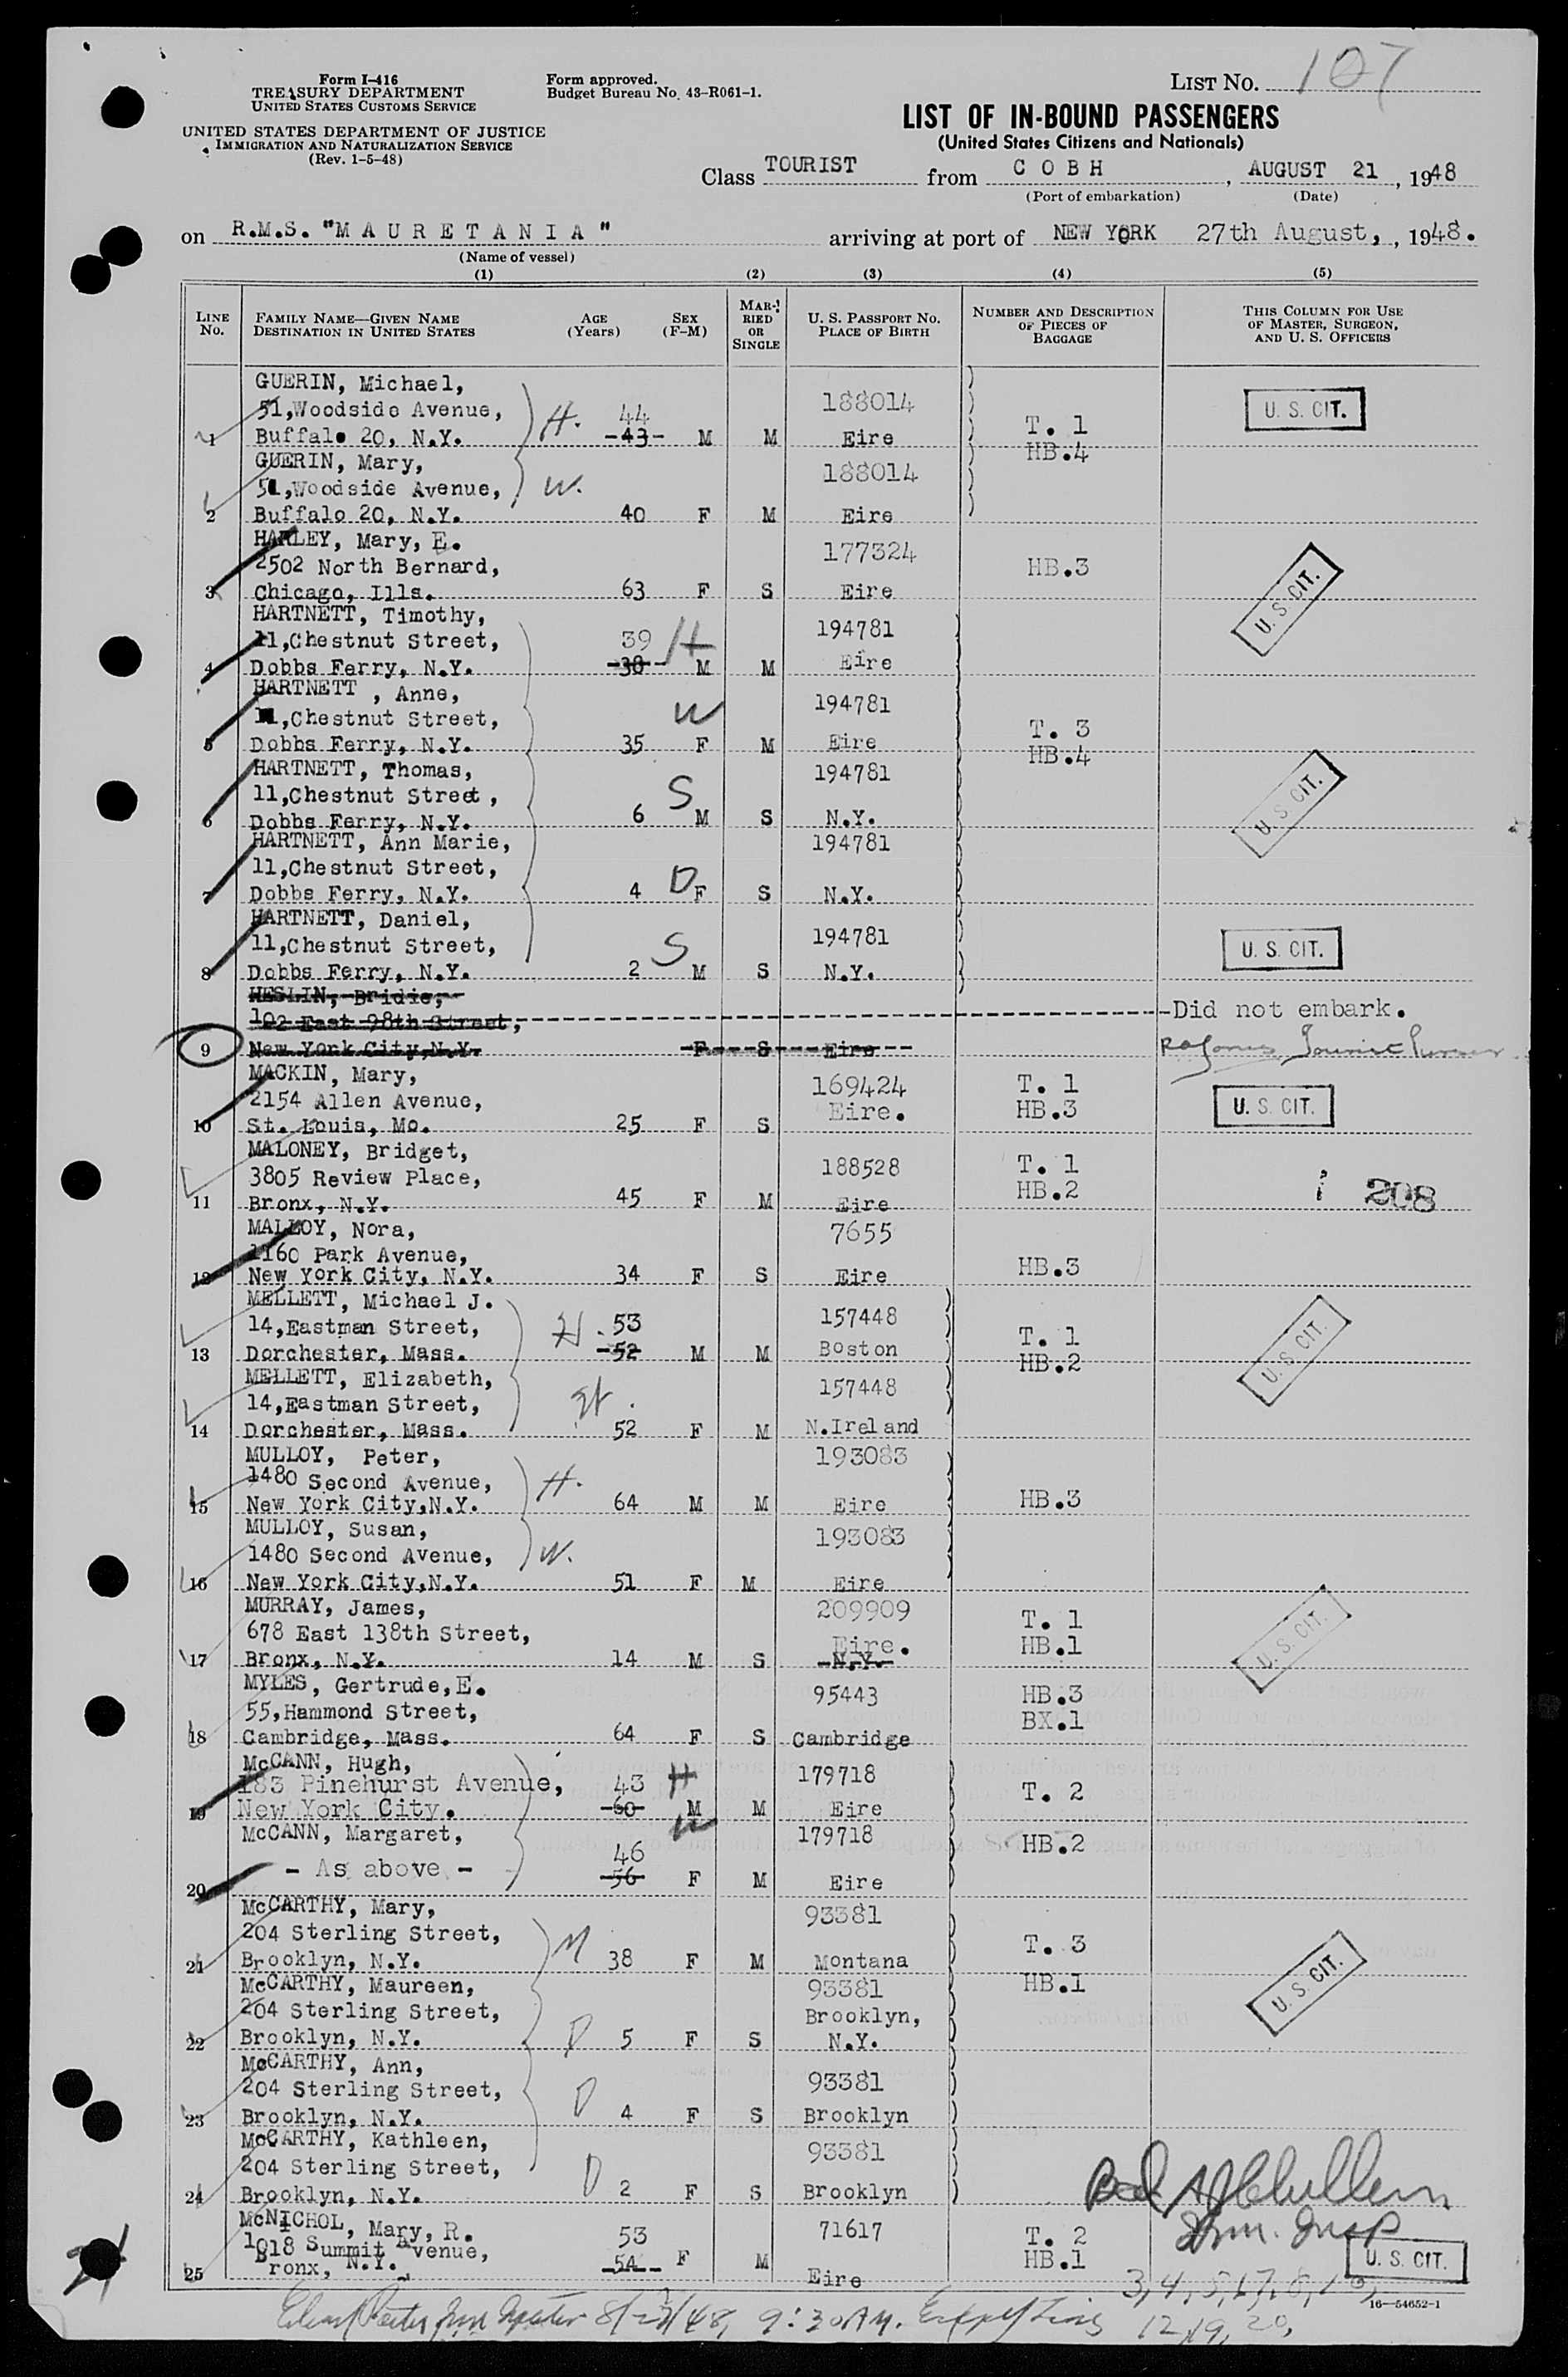 Form I-416
TREASURY DEPARTMENT
UNITED STATES CUSTOMS SERVICE
UNITED STATES DEPARTMENT OF JUSTICE
IMMIGRATION AND NATURALIZATION SERVICE
(Rev. 1-5-48)
Form approved.
Budget Bureau No. 43-R061-1.
LIST NO. 107
LIST OF IN-BOUND PASSENGERS
(United States Citizens and Nationals)
Class TOURIST from COBH, AUGUST 21, 1948
(Port of embarkation) (Date)
on R.M.S. "MAURETANIA" arriving at port of NEW YORK 27th August, , 1948.
(Name of vessel)
(1) (2) (3) (4) (5)
LINE NO. FAMILY NAME—GIVEN NAME DESTINATION IN UNITED STATES AGE (Years) SEX (F-M) MARRIED OR SINGLE U. S. PASSPORT NO. PLACE OF BIRTH NUMBER AND DESCRIPTION OF PIECES OF BAGGAGE THIS COLUMN FOR USE OF MASTER, SURGEON, AND U. S. OFFICERS
GUERIN, Michael,
51,Woodside Avenue, H. 44 188014 U. S. CIT.
1 Buffalo 20, N.Y. -43- M M Eire T. 1
HB.4
GUERIN, Mary,
51,Woodside Avenue, W. 188014
2 Buffalo 20, N.Y. 40 F M Eire
HARLEY, Mary, E.
2502 North Bernard, 177324 HB.3 U. S. CIT.
3 Chicago, Ills. 63 F S Eire
HARTNETT, Timothy,
11,Chestnut Street, 39 H 194781
4 Dobbs Ferry, N.Y. -38- M M Eire
HARTNETT , Anne,
11,Chestnut Street, W 194781
5 Dobbs Ferry, N.Y. 35 F M Eire T. 3
HB.4
HARTNETT, Thomas,
11,Chestnut Street, S 194781 U. S. CIT.
6 Dobbs Ferry, N.Y. 6 M S N.Y.
HARTNETT, Ann Marie,
11,Chestnut Street, D 194781
7 Dobbs Ferry, N.Y. 4 F S N.Y.
HARTNETT, Daniel,
11,Chestnut Street, S 194781 U. S. CIT.
8 Dobbs Ferry, N.Y. 2 M S N.Y.
HESLIN, Bridie,
102 East 98th Street, Did not embark.
9 New York City,N.Y. F S Eire
MACKIN, Mary,
2154 Allen Avenue, 169424 T. 1 U. S. CIT.
10 St. Louis, Mo. 25 F S Eire. HB.3
MALONEY, Bridget,
3805 Review Place, 188528 T. 1
11 Bronx, N.Y. 45 F M Eire HB.2 208
MALLOY, Nora,
1160 Park Avenue, 7655 HB.3
12 New York City, N.Y. 34 F S Eire
MELLETT, Michael J.
14,Eastman Street, H. 53 157448 T. 1 U. S. CIT.
13 Dorchester, Mass. -52 M M Boston HB.2
MELLETT, Elizabeth,
14,Eastman Street, 157448
14 Dorchester, Mass. 52 F M N.Ireland
MULLOY, Peter,
1480 Second Avenue, H. 193083 HB.3
15 New York City,N.Y. 64 M M Eire
MULLOY, Susan,
1480 Second Avenue, W. 193083
16 New York City,N.Y. 51 F M Eire
MURRAY, James,
678 East 138th Street, 209909 T. 1 U. S. CIT.
17 Bronx, N.Y. 14 M S Eire. -N.Y.- HB.1
MYLES, Gertrude,E.
55,Hammond Street, 95443 HB.3
18 Cambridge, Mass. 64 F S Cambridge BX.1
McCANN, Hugh,
183 Pinehurst Avenue, 43 H 179718 T. 2
19 New York City. -60- M M Eire
McCANN, Margaret, W 179718 HB.2
- As above - 46
20 -56- F M Eire
McCARTHY, Mary,
204 Sterling Street, M 93381 T. 3
21 Brooklyn, N.Y. 38 F M Montana HB.1
McCARTHY, Maureen,
204 Sterling Street, D 93381 U. S. CIT.
22 Brooklyn, N.Y. 5 F S Brooklyn, N.Y.
McCARTHY, Ann,
204 Sterling Street, D 93381
23 Brooklyn, N.Y. 4 F S Brooklyn
McCARTHY, Kathleen,
204 Sterling Street, D 93381
24 Brooklyn, N.Y. 2 F S Brooklyn
McNICHOL, Mary, R.
1018 Summit Avenue, 53 71617 T. 2 Imm. Insp
25 Bronx, N.Y. -54- F M Eire HB.1 U. S. CIT.
16—54652-1
9:30 AM.
12, 19, 20,